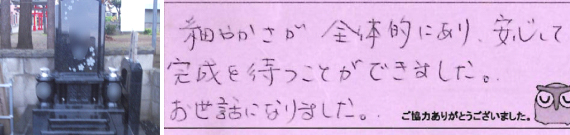 細やかさが 全体的にあり、安心して
完成を待つことができました。
お世話になりました。
ご協力ありがとうございました。